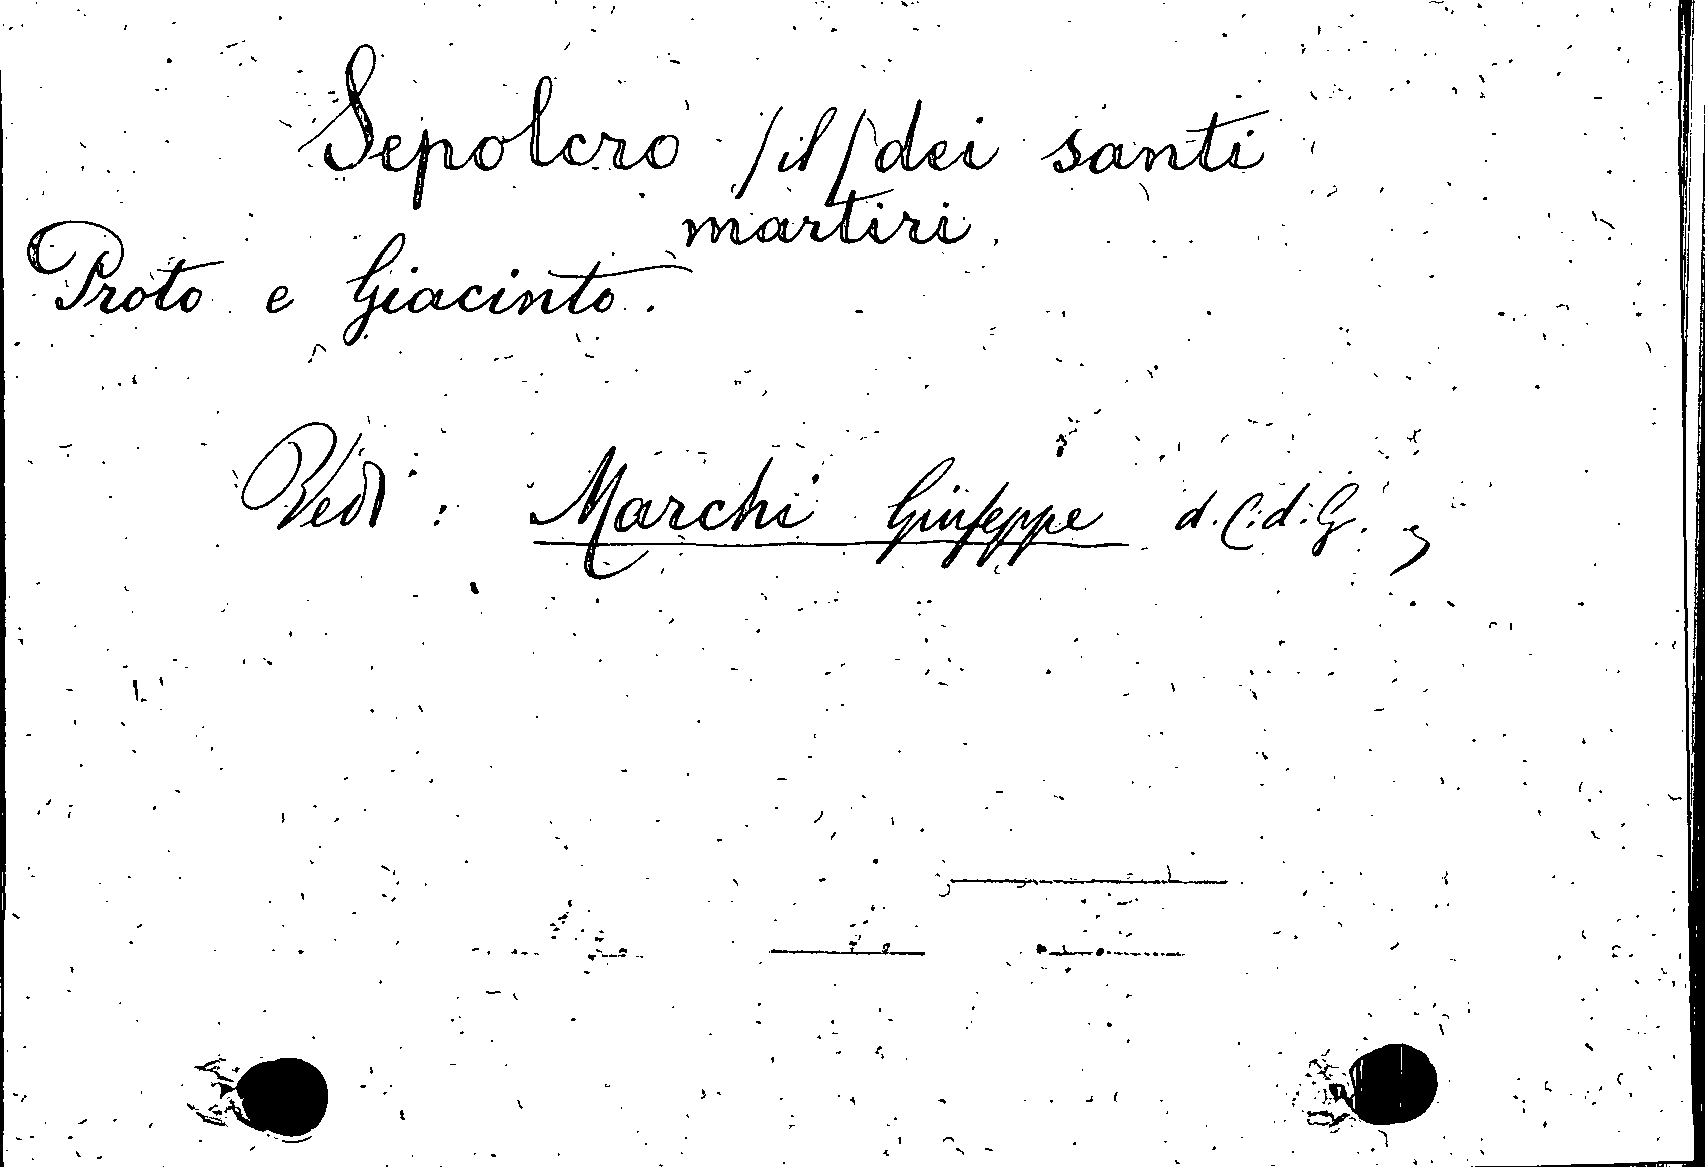 Sepolcro /il/ dei santi
martiri
Proto e Giacinto.
Vedi: Marchi Giuseppe d. C. d. G.